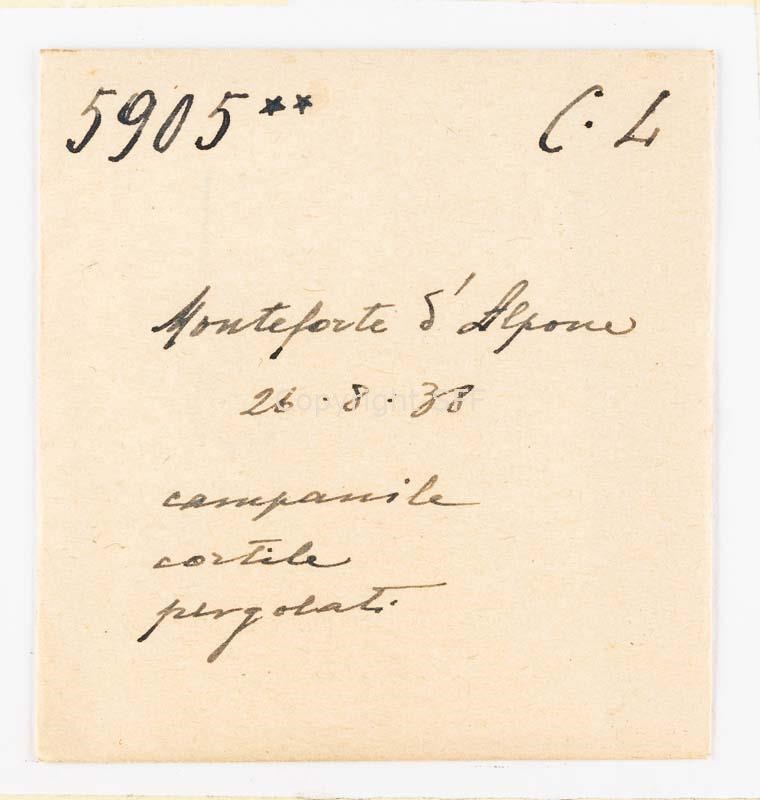 5905** C. L
Monteforte d'Alpone
26.8.38
campanile
cortile
pergolati